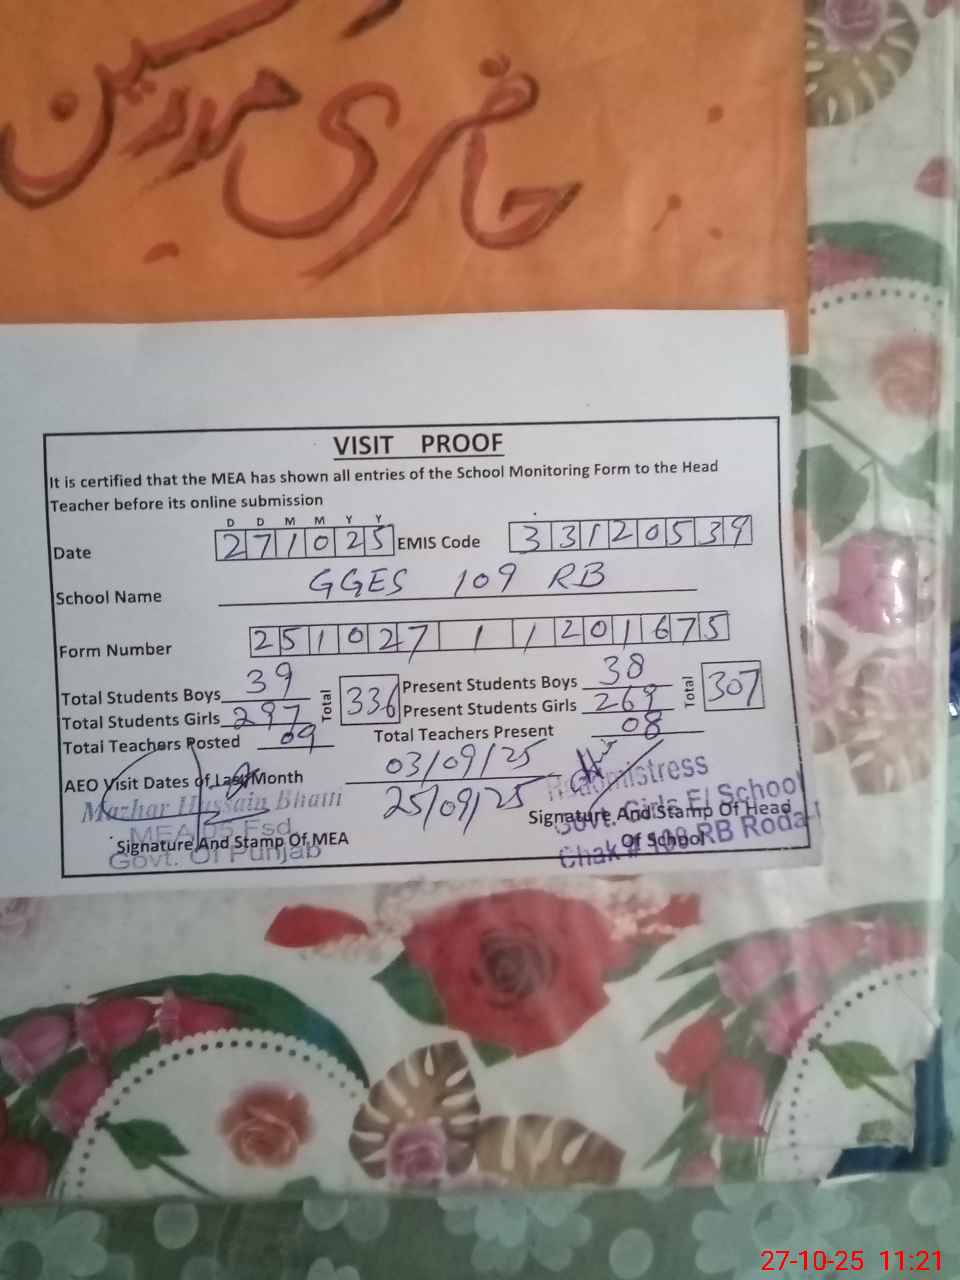 حاضری مدرسین
VISIT PROOF
It is certified that the MEA has shown all entries of the School Monitoring Form to the Head
Teacher before its online submission
D D M M Y Y
Date 271025 EMIS Code 33120539
School Name GGES 109 RB
Form Number 25102711201675
Total Students Boys 39 Total 336 Present Students Boys 38 Total 307
Total Students Girls 297 Present Students Girls 269
Total Teachers Posted 09 Total Teachers Present 08
AEO Visit Dates of Last Month 03/09/25
25/09/25
Mazhar Hussain Bhatti
MEA 05 Fsd
Govt. Of Punjab
Signature And Stamp Of MEA
Headmistress
Govt. Girls E/ School
Chak # 109 RB Roda
Signature And Stamp Of Head
Of School
27-10-25 11:21